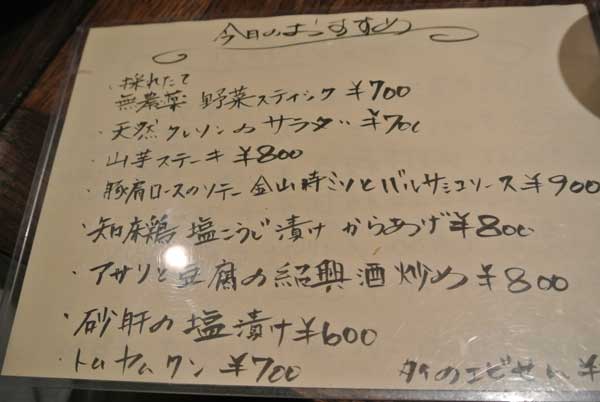 今日のおすすめ
・採れたて
無農薬 野菜スティック ¥700
・天然クレソンのサラダ ¥700
・山芋ステーキ ¥800
・豚肩ロースのソテー 金山時ミソとバルサミコソース ¥900
・知床鶏 塩こうじ漬け からあげ ¥800
・アサリと豆腐の紹興酒炒め ¥800
・砂肝の塩漬け ¥600
・トムヤムクン ¥700 タイのエビせん ¥